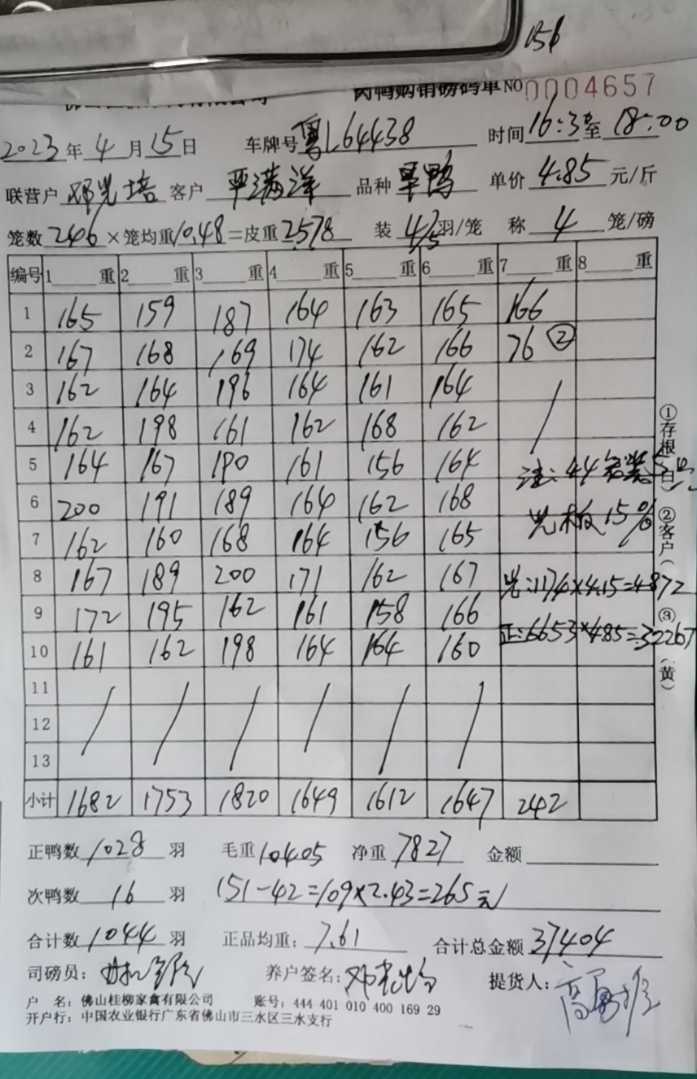 156
肉鸭购销磅码单 NO 0004657
2023年4月15日 车牌号 粤L64438 时间16:3 至 18:00
联营户 邓光培 客户 严满洋 品种 旱鸭 单价 4.85 元/斤
笼数 246 × 笼均重 10.48 = 皮重 2578 装 羽/笼 称 4 笼/磅
编号 1 重 2 重 3 重 4 重 5 重 6 重 7 重 8 重
1 165 159 187 164 163 165 166
2 167 168 169 174 162 166 76 ②
3 162 164 196 164 161 164
4 162 198 161 162 168 162
5 164 167 190 161 156 164 注: 44
6 200 191 189 164 162 168 光板15%
7 162 160 168 164 156 165
8 167 189 200 171 162 167 光:1174×4.15=4872
9 172 195 162 161 158 166
10 161 162 198 164 164 160 正:6653×4.85=32267
11
12
13
小计 1682 1753 1820 1649 1612 1647 242
①存根(白) ②客户( ) ③ (黄)
正鸭数 1028 羽 毛重 10405 净重 7827 金额
次鸭数 16 羽 151-42=109×2.43=265元
合计数 1044 羽 正品均重: 7.61 合计总金额 37404
司磅员: 养户签名: 邓光培 提货人:
户 名: 佛山桂柳家禽有限公司 账号: 444 401 010 400 169 29
开户行: 中国农业银行广东省佛山市三水区三水支行